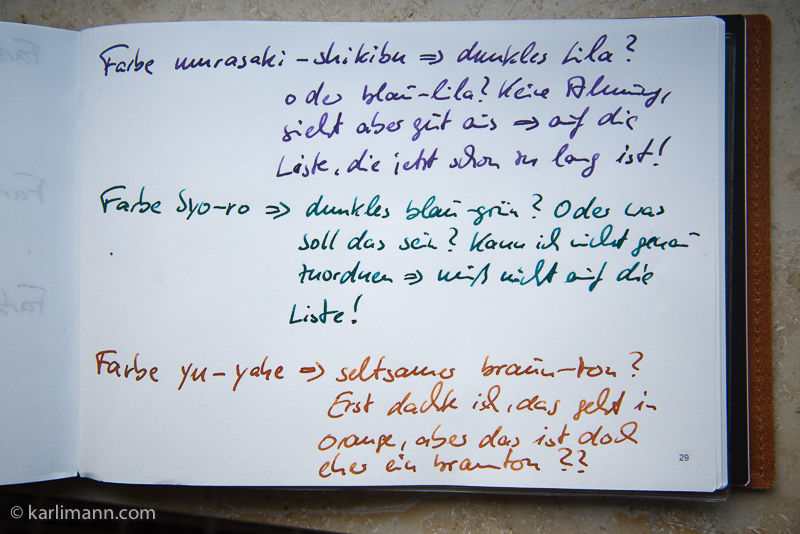 Farbe murasaki-shikibu => dunkles Lila?
oder blau-lila? Keine Ahnung,
sieht aber gut aus => auf die
Liste, die jetzt schon zu lang ist!
Farbe Syo-ro => dunkles blau-grün? Oder was
soll das sein? Kann ich nicht genau
zuordnen => muß nicht auf die
Liste!
Farbe yu-yake => seltsamer braun-ton?
Erst dachte ich, das geht in
orange, aber das ist doch
eher ein braunton ??
29
© karlimann.com